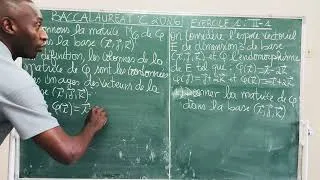 BACCALAUREAT C 2026 EXERCICE 1: II-1
Donnons la matrice de φ
dans la base (i, j, k)
Par définition, les colonnes de la
matrice de φ sont les coordonnées
des images des vecteurs de la
base (i, j, k).
φ(i) =
on considère l'espace vectoriel
E de dimension 3 de base
(i, j, k) et φ l'endomorphisme
de E tel que: φ(i) =
φ(j) =
φ(k) =
1) Donner la matrice de φ
dans la base (i, j, k)